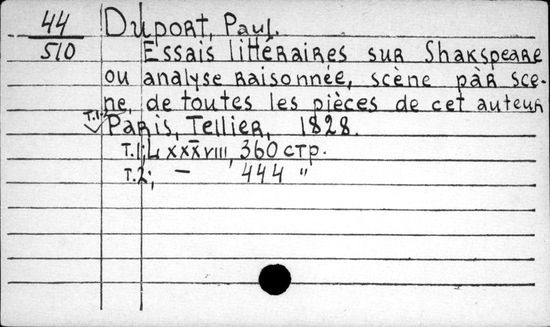 44 Duport, Paul.
510 Essais littéraires sur Shakspeare
ou analyse raisonnée, scène pàr scè-
ne, de toutes les pièces de cet auteur
T.1-2 Paris, Tellier, 1828.
T.1; LXXXVIII, 360 стр.
T.2; — 444 "